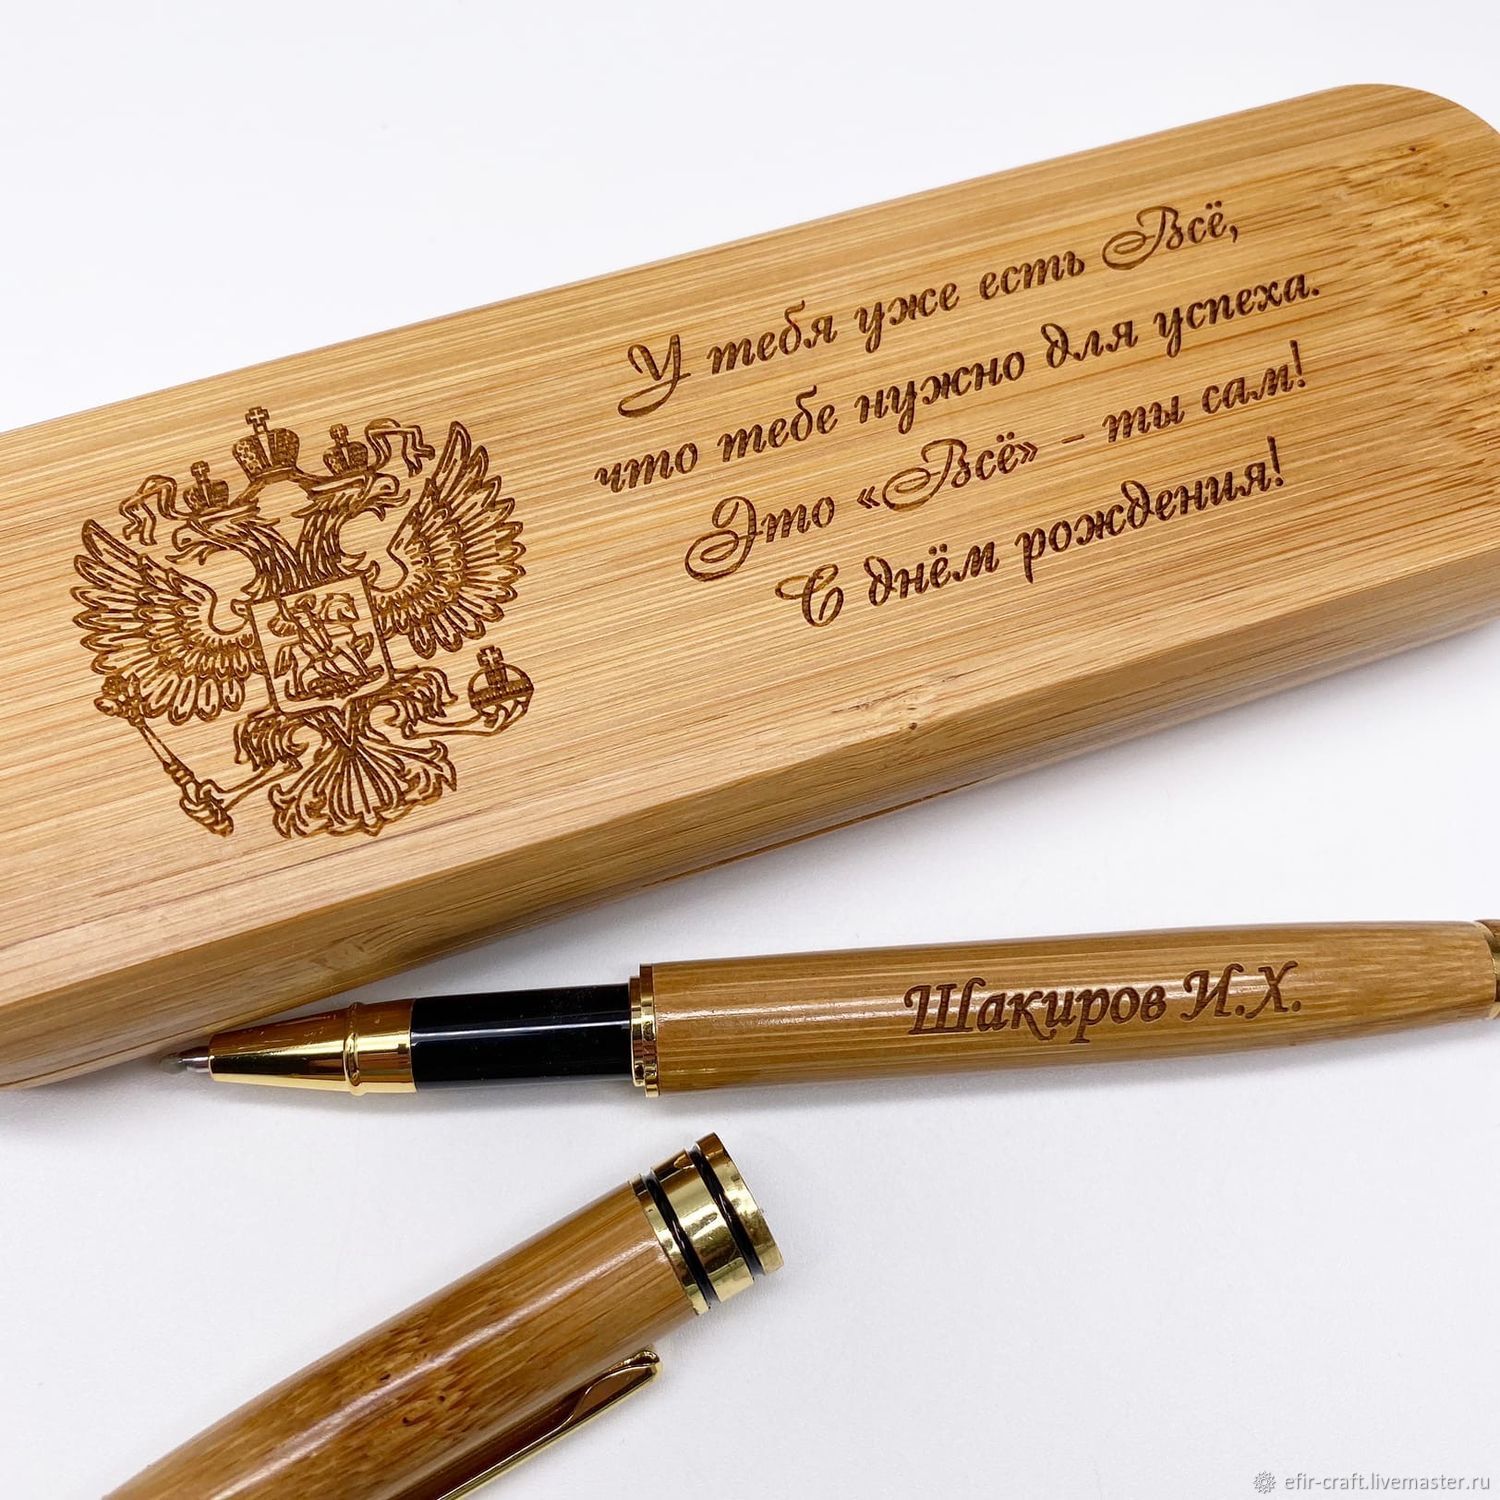 У тебя уже есть Всё,
что тебе нужно для успеха.
Это «Всё» - ты сам!
С днём рождения!
Шакиров И.Х.
efir-craft.livemaster.ru